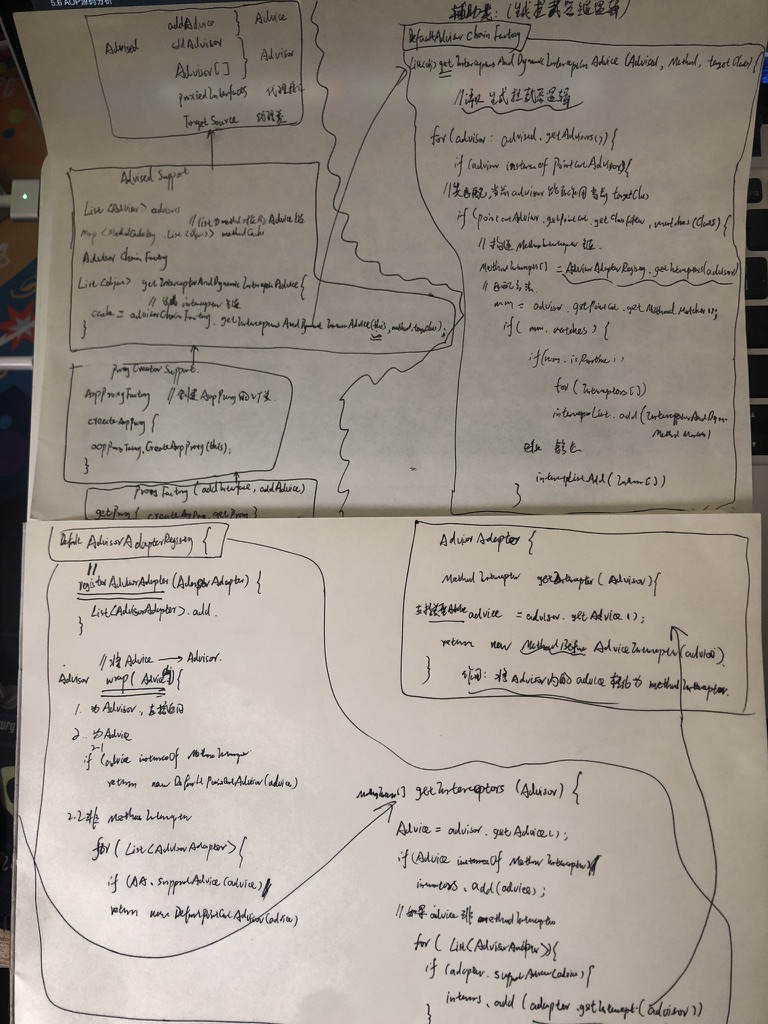 5.6 AOP源码分析
Advised
addAdvice } Advice
addAdvisor
Advisor[] } Advisor
proxiedInterfaces 代理接口
TargetSource
Advised Support
List<Advisor> advisors
// list为method对应的Advice链
Map <MethodCacheKey, List<Object>> methodCache
Advisor Chain Factory
List<object> getInterceptorAndDynamicInterceptionAdvice {
// interceptor
cache = advisorChainFactory.getInterceptorsAndDynamicInterceptionAdvice(this, method, targetClass);
}
Proxy Creator Support
AopProxyFactory // 创建AopProxy的工厂
createAopProxy {
aopProxyFactory.CreateAopProxy(this);
}
Proxy Factory (addInterface, addAdvice)
getProxy { createAopProxy.getProxy }
辅助类: (生成拦截器链逻辑)
DefaultAdvisor Chain Factory
List<obj> get Interceptors And Dynamic Interception Advice (Advised, Method, targetClass) {
// 生成拦截器逻辑
for (advisor : advised.getAdvisors()) {
if (advisor instance of PointcutAdvisor) {
// 先匹配, 当前advisor 作用当前targetClass
if (pointcutAdvisor.getPointcut.getClassFilter.matches(Class) {
// MethodInterceptor 链
MethodInterceptor[] = AdvisorAdapterRegistry.getInterceptors(advisor)
// 匹配方法
mm = advisor.getPointcut.getMethodMatcher();
if ( mm.matches ) {
if (mm.isRuntime())
for (Interceptors[])
interceptorList.add(InterceptorAndDynamicMethodMatcher)
else 静态
interceptorList.Add (Interc[])
}
Default AdvisorAdapterRegistry {
//
registerAdvisorAdapter (AdvisorAdapter) {
List<AdvisorAdapter>.add
}
// 将 Advice → Advisor.
Advisor wrap( Advice obj ) {
1. 为 Advisor, 直接返回
2. 为 Advice
2-1
if (advice instanceOf MethodInterceptor
return new DefaultPointcutAdvisor(advice)
2.2 非 method Interceptor
for ( List<AdvisorAdapter> {
if (AA.supportAdvice(advice))
return new DefaultPointCutAdvisor(advice)
Advisor Adapter {
Method Interceptor getInterceptor ( Advisor) {
advice = advisor.getAdvice();
return new MethodBefore AdviceInterceptor (advice)
}
作用: 将 Advisor内的 advice 转化为 methodInterceptor.
methodInterceptor[] getInterceptors (Advisor) {
Advice = advisor.getAdvice();
if (Advice instanceOf Method Interceptor)
interceptors.add(advice);
// 如果 advice 非 methodInterceptor
for ( List<AdvisorAdapter>) {
if (adapter.supportAdvice(advice) {
interceptors.add (adapter.getInterceptor(advisor))
}